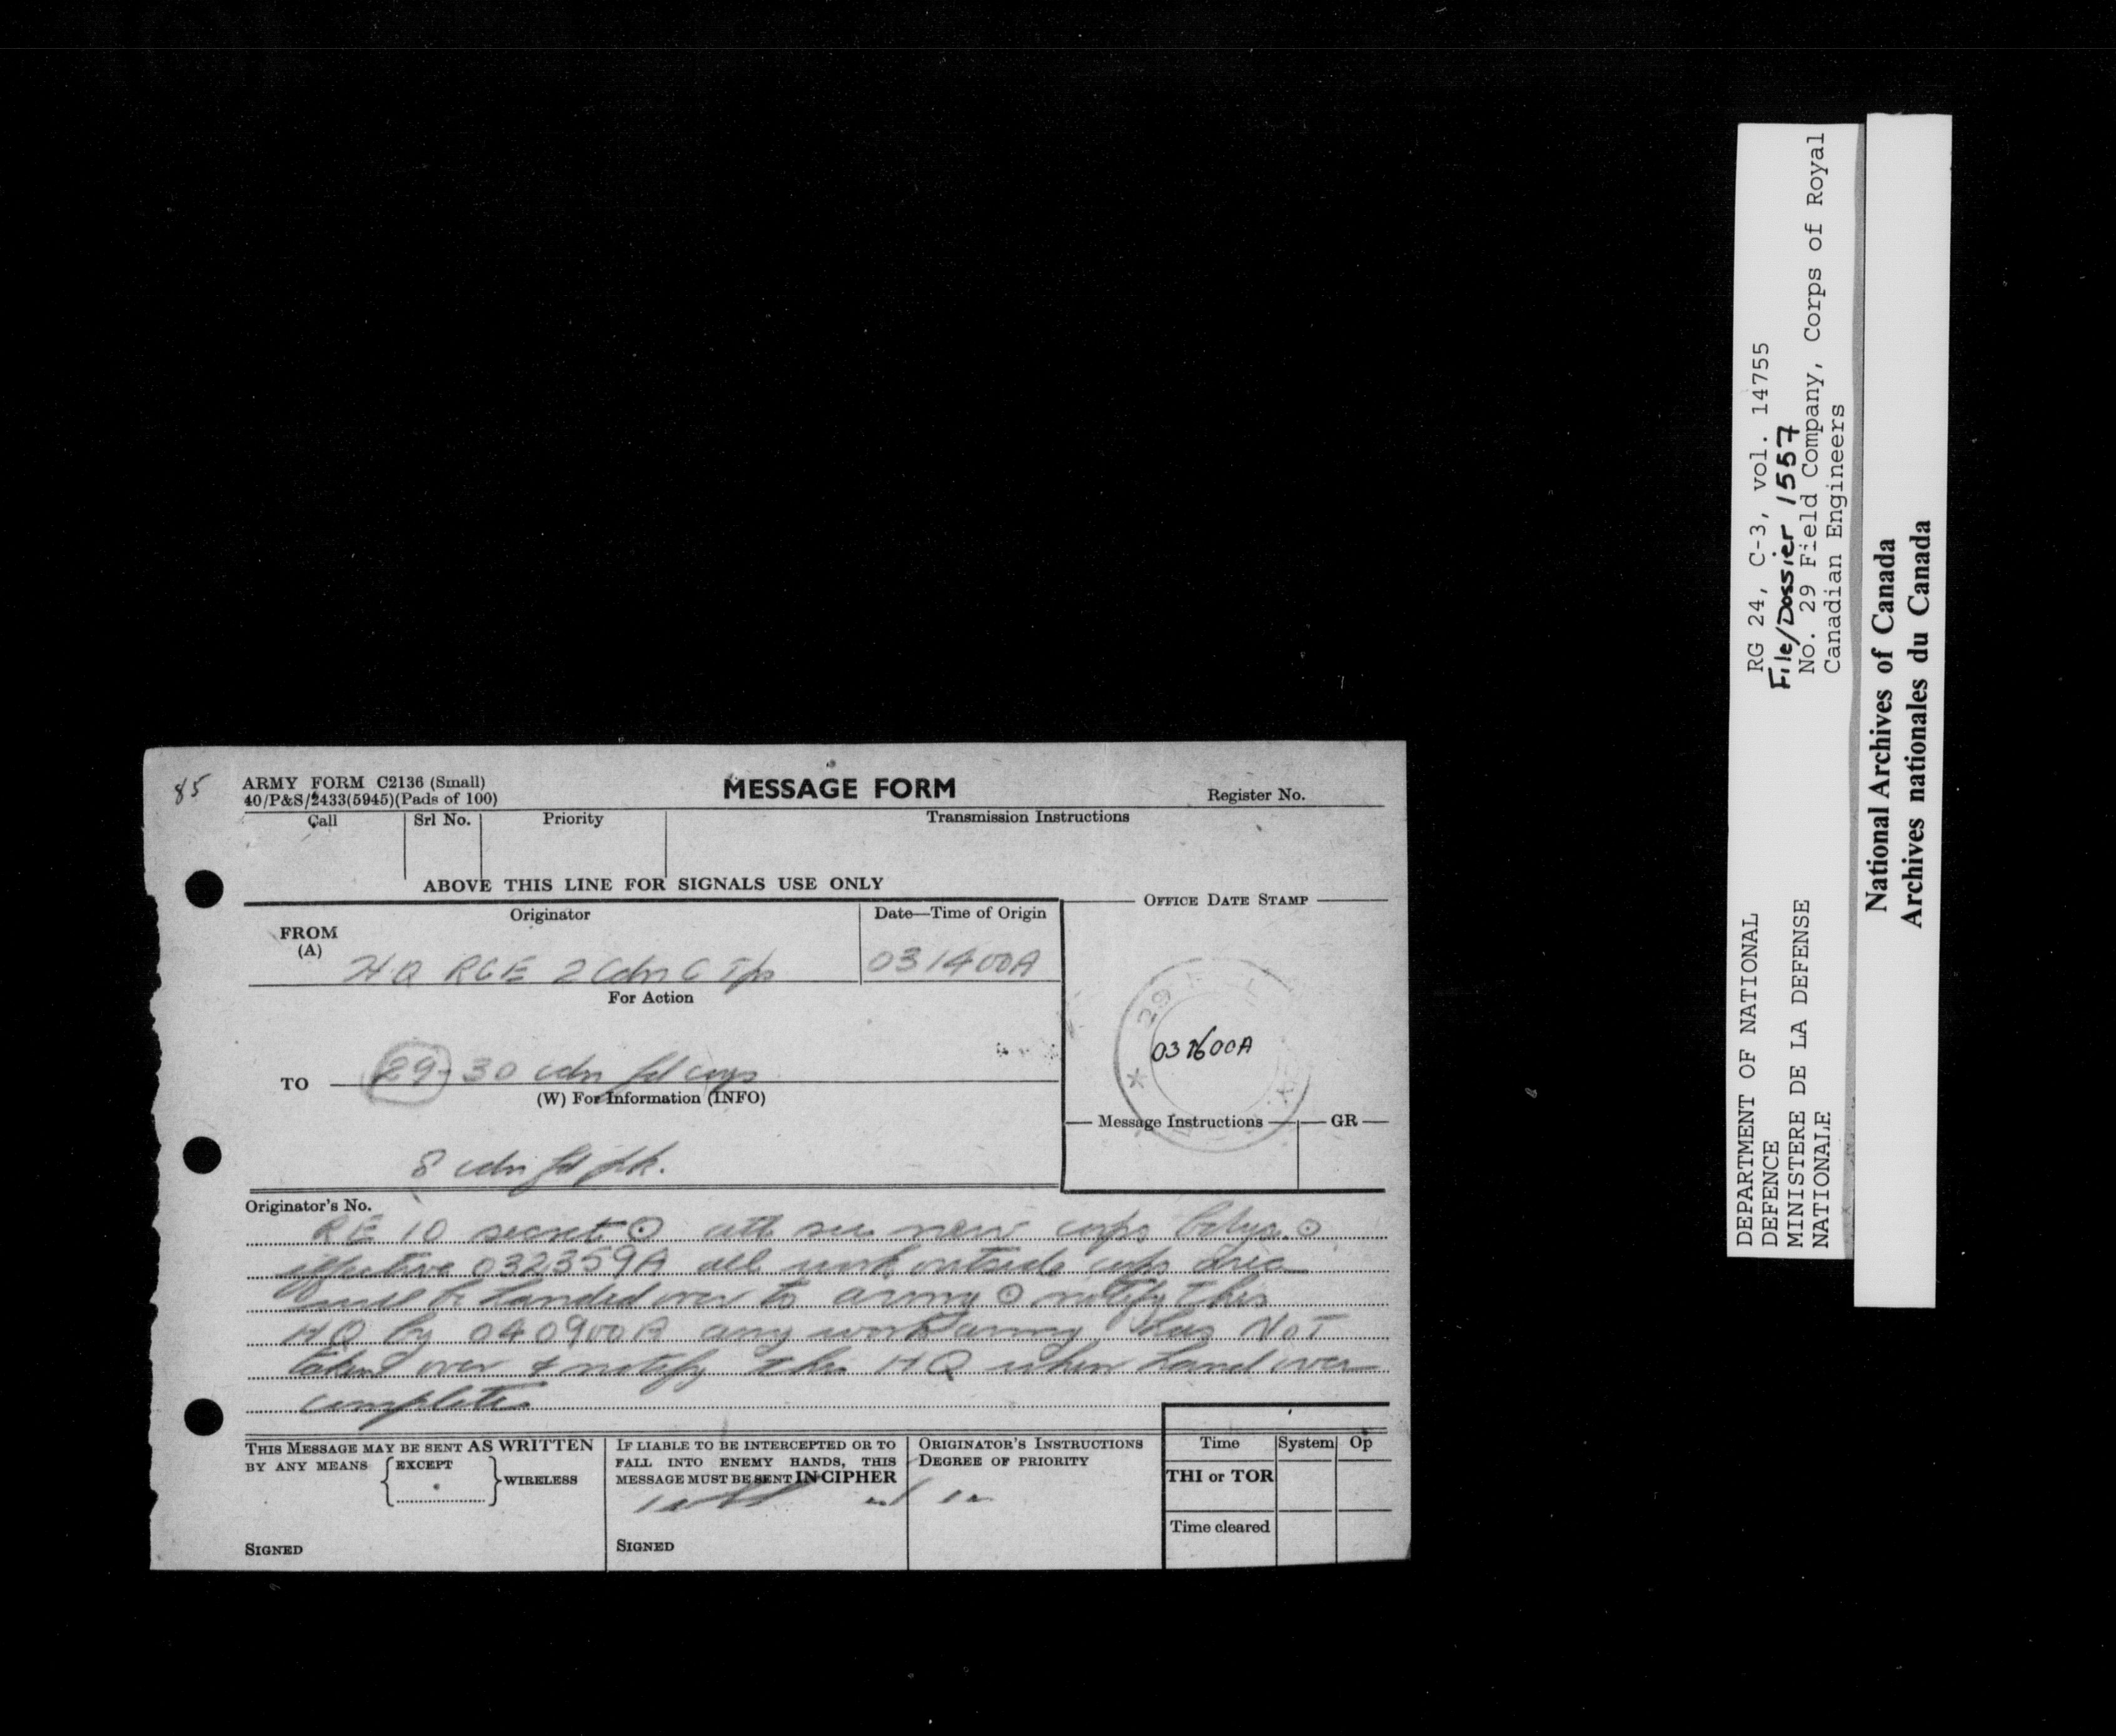 85
ARMY FORM C2136 (Small)
40/P&S/2433(5945)(Pads of 100)
MESSAGE FORM
Register No.
Call
Srl No.
Priority
Transmission Instructions
ABOVE THIS LINE FOR SIGNALS USE ONLY
Originator
Date—Time of Origin
OFFICE DATE STAMP
FROM
(A)
HQ RCE 2 Cdn C Tps
031400A
For Action
29
031600A
TO
29-30 cdn fd coys
(W) For Information (INFO)
Message Instructions
GR
8 cdn fd pk.
Originator's No.
RE 10 secret ⊙ att new corps bdys ⊙
effective 032359A all work outside corps area
will be handed over to army ⊙ notify this
HQ by 040900A any work army has NOT
taken over & notify this HQ when hand over
complete
THIS MESSAGE MAY BE SENT AS WRITTEN
BY ANY MEANS
EXCEPT
WIRELESS
SIGNED
IF LIABLE TO BE INTERCEPTED OR TO
FALL INTO ENEMY HANDS, THIS
MESSAGE MUST BE SENT IN CIPHER
SIGNED
ORIGINATOR'S INSTRUCTIONS
DEGREE OF PRIORITY
Time
System
Op
THI or TOR
Time cleared
DEPARTMENT OF NATIONAL
DEFENCE
MINISTERE DE LA DEFENSE
NATIONALE
RG 24, C-3, vol. 14755
File/Dossier 1557
No. 29 Field Company, Corps of Royal
Canadian Engineers
National Archives of Canada
Archives nationales du Canada